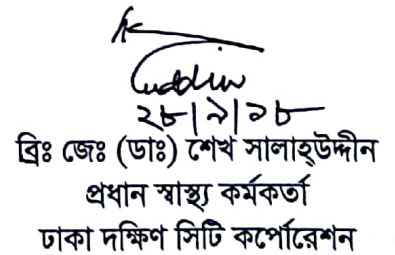 ২৮/৯/১৮
ব্রিঃ জেঃ (ডাঃ) শেখ সালাহ্উদ্দীন
প্রধান স্বাস্থ্য কর্মকর্তা
ঢাকা দক্ষিণ সিটি কর্পোরেশন